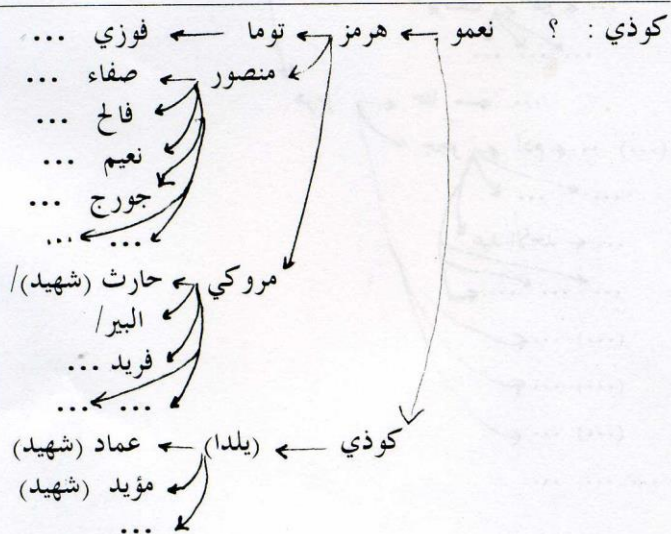 كوذي : ؟ نعمو ← هرمز ← توما ← فوزي ...
منصور ← صفاء ...
فالح ...
نعيم ...
جورج ...
... ...
مروكي ← حارث (شهيد)/
البير/
فريد ...
... ...
كوذي ← (يلدا) ← عماد (شهيد)
مؤيد (شهيد)
...